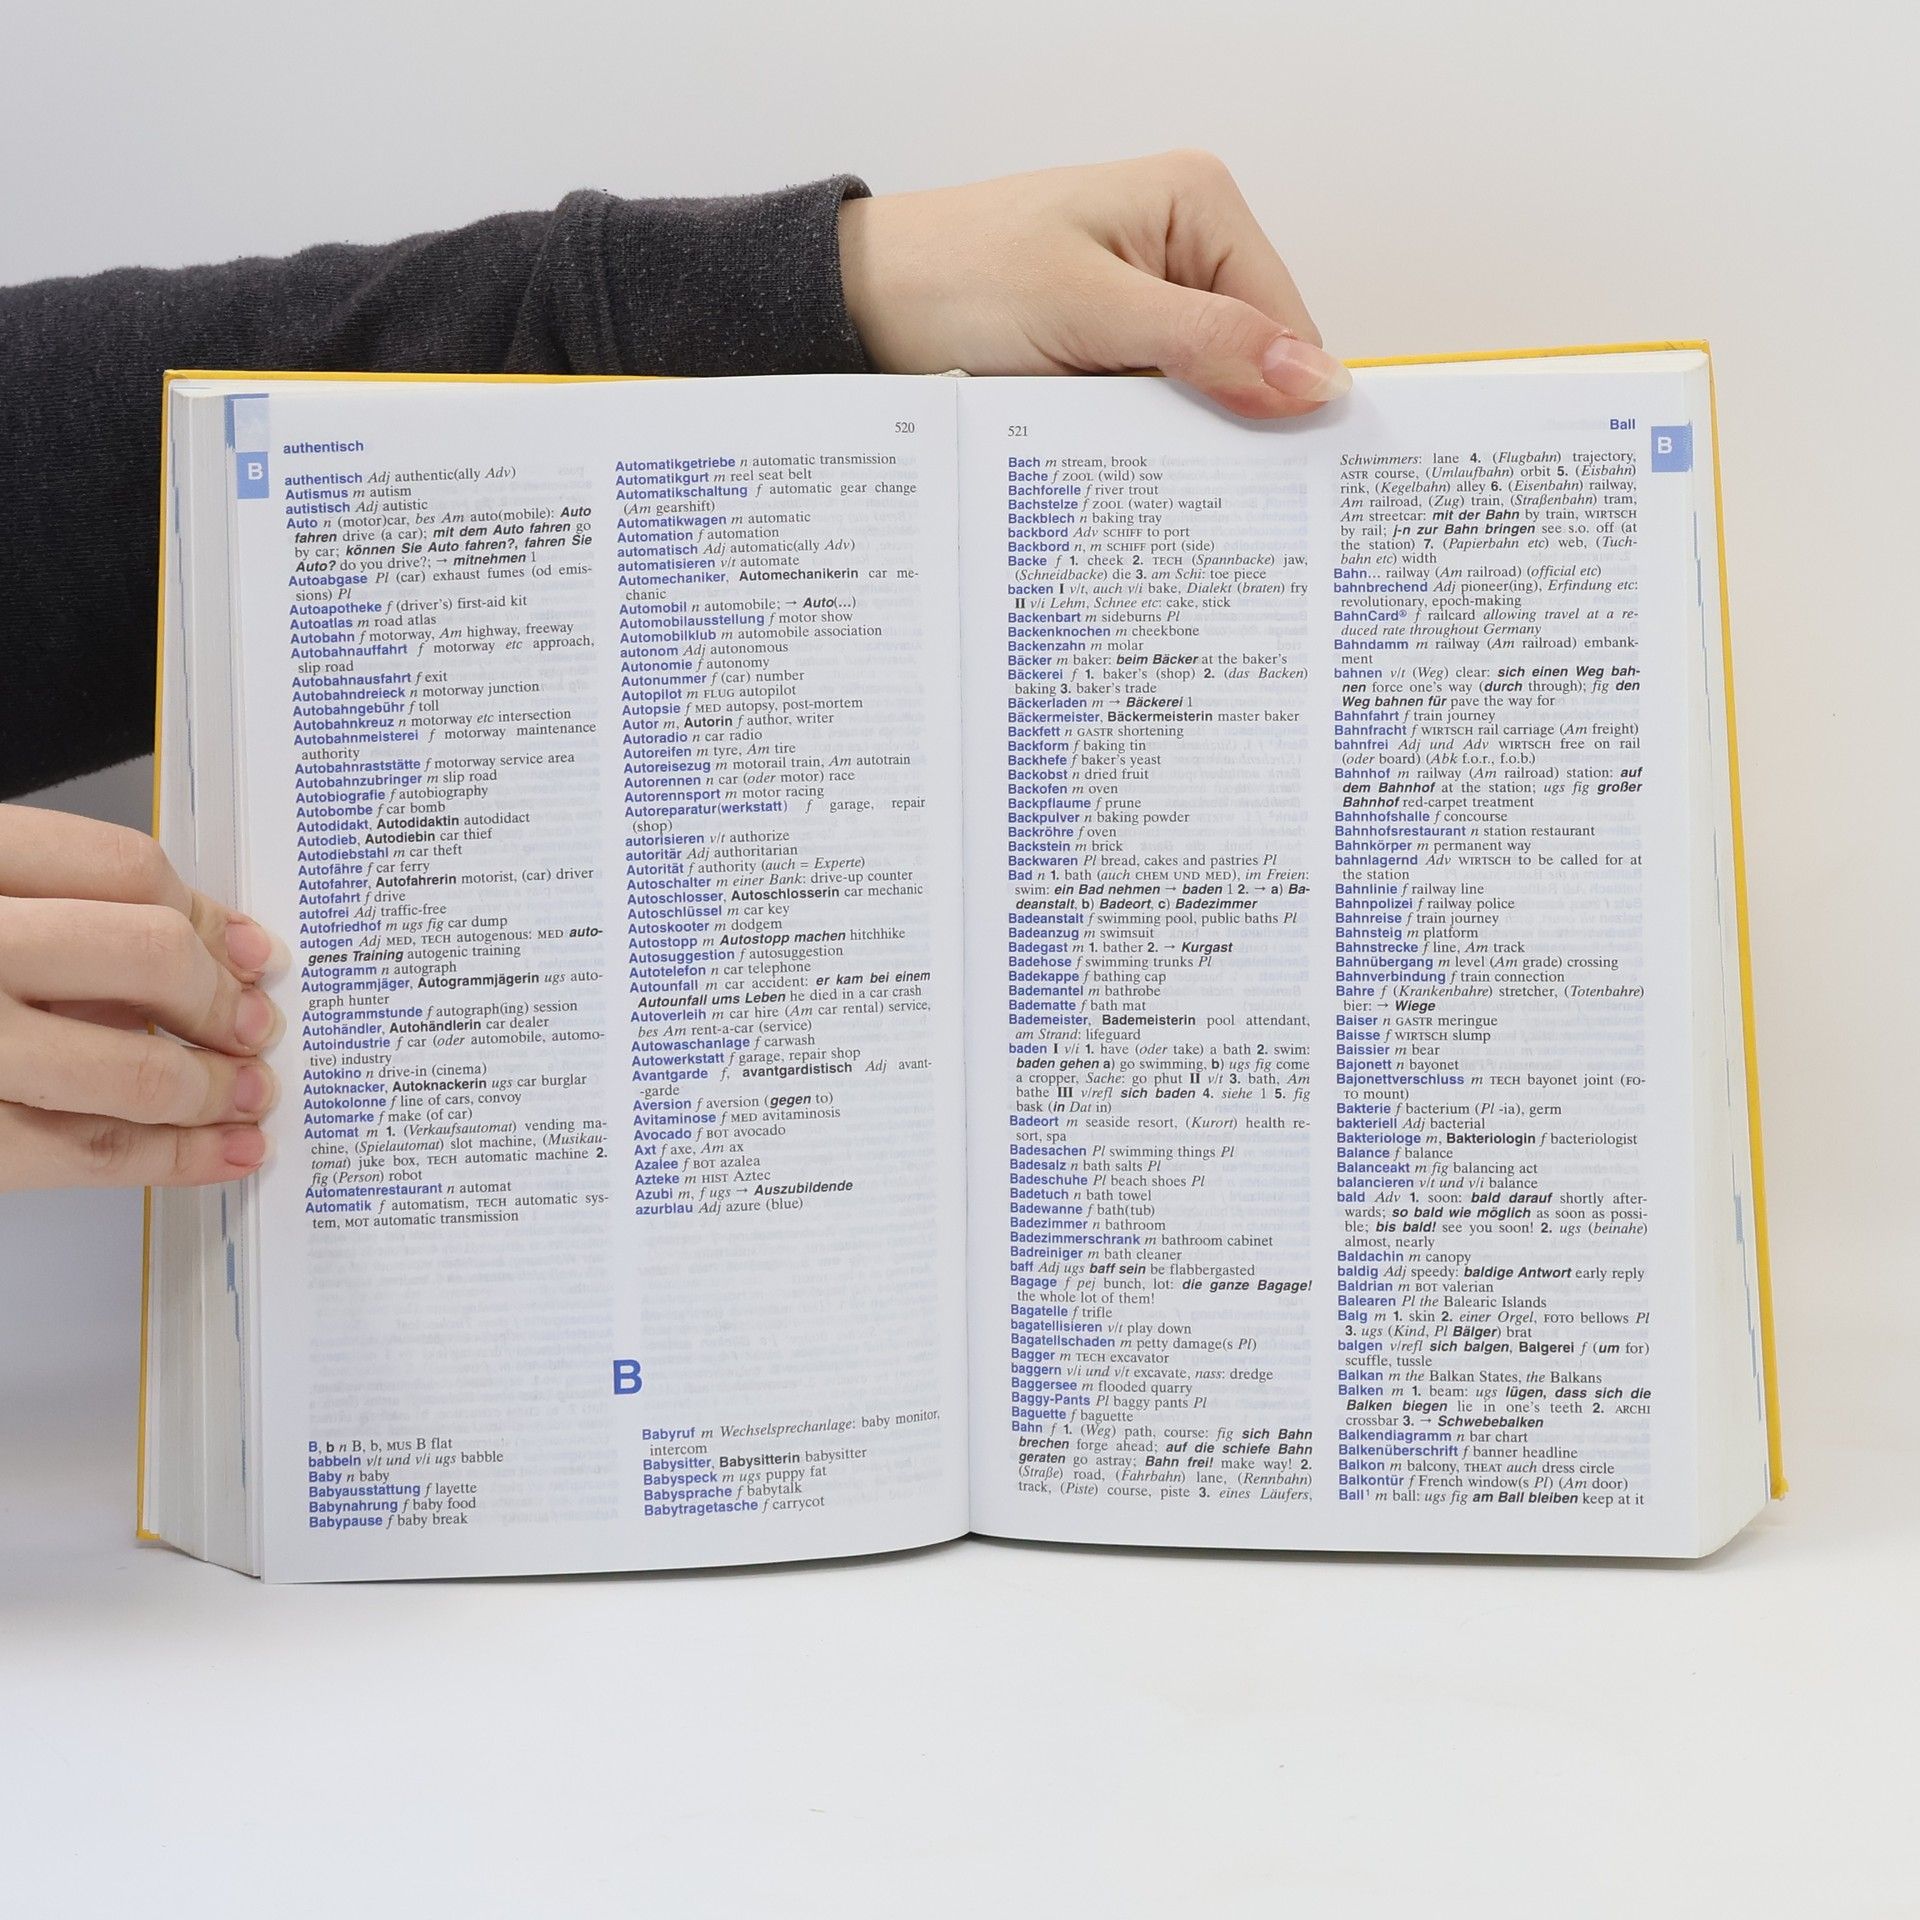 authentisch
520
B
authentisch Adj authentic(ally Adv)
Autismus m autism
autistisch Adj autistic
Auto n (motor)car, bes Am auto(mobile): Auto
fahren drive (a car); mit dem Auto fahren go
by car; können Sie Auto fahren?, fahren Sie
Auto? do you drive?; → mitnehmen 1
Autoabgase Pl (car) exhaust fumes (od emis-
sions) Pl
Autoapotheke f (driver's) first-aid kit
Autoatlas m road atlas
Autobahn f motorway, Am highway, freeway
Autobahnauffahrt f motorway etc approach,
slip road
Autobahnausfahrt f exit
Autobahndreieck n motorway junction
Autobahngebühr f toll
Autobahnkreuz n motorway etc intersection
Autobahnmeisterei f motorway maintenance
authority
Autobahnraststätte f motorway service area
Autobahnzubringer m slip road
Autobiografie f autobiography
Autobombe f car bomb
Autodidakt, Autodidaktin autodidact
Autodieb, Autodiebin car thief
Autodiebstahl m car theft
Autofähre f car ferry
Autofahrer, Autofahrerin motorist, (car) driver
Autofahrt f drive
autofrei Adj traffic-free
Autofriedhof m ugs fig car dump
autogen Adj MED, TECH autogenous: MED auto-
genes Training autogenic training
Autogramm n autograph
Autogrammjäger, Autogrammjägerin ugs auto-
graph hunter
Autogrammstunde f autograph(ing) session
Autohändler, Autohändlerin car dealer
Autoindustrie f car (oder automobile, automo-
tive) industry
Autokino n drive-in (cinema)
Autoknacker, Autoknackerin ugs car burglar
Autokolonne f line of cars, convoy
Automarke f make (of car)
Automat m 1. (Verkaufsautomat) vending ma-
chine, (Spielautomat) slot machine, (Musikau-
tomat) juke box, TECH automatic machine 2.
fig (Person) robot
Automatenrestaurant n automat
Automatik f automatism, TECH automatic sys-
tem, MOT automatic transmission
Automatikgetriebe n automatic transmission
Automatikgurt m reel seat belt
Automatikschaltung f automatic gear change
(Am gearshift)
Automatikwagen m automatic
Automation f automation
automatisch Adj automatic(ally Adv)
automatisieren v/t automate
Automechaniker, Automechanikerin car me-
chanic
Automobil n automobile; → Auto(...)
Automobilausstellung f motor show
Automobilklub m automobile association
autonom Adj autonomous
Autonomie f autonomy
Autonummer f (car) number
Autopilot m FLUG autopilot
Autopsie f MED autopsy, post-mortem
Autor m, Autorin f author, writer
Autoradio n car radio
Autoreifen m tyre, Am tire
Autoreisezug m motorail train, Am autotrain
Autorennen n car (oder motor) race
Autorennsport m motor racing
Autoreparatur(werkstatt) f garage, repair
(shop)
autorisieren v/t authorize
autoritär Adj authoritarian
Autorität f authority (auch = Experte)
Autoschalter m einer Bank: drive-up counter
Autoschlosser, Autoschlosserin car mechanic
Autoschlüssel m car key
Autoskooter m dodgem
Autostopp m Autostopp machen hitchhike
Autosuggestion f autosuggestion
Autotelefon n car telephone
Autounfall m car accident: er kam bei einem
Autounfall ums Leben he died in a car crash
Autoverleih m car hire (Am car rental) service,
bes Am rent-a-car (service)
Autowaschanlage f carwash
Autowerkstatt f garage, repair shop
Avantgarde f, avantgardistisch Adj avant-
-garde
Aversion f aversion (gegen to)
Avitaminose f MED avitaminosis
Avocado f BOT avocado
Axt f axe, Am ax
Azalee f BOT azalea
Azteke m HIST Aztec
Azubi m, f ugs → Auszubildende
azurblau Adj azure (blue)
B
B, b n B, b, MUS B flat
babbeln v/t und v/i ugs babble
Baby n baby
Babyausstattung f layette
Babynahrung f baby food
Babypause f baby break
Babyruf m Wechselsprechanlage: baby monitor,
intercom
Babysitter, Babysitterin babysitter
Babyspeck m ugs puppy fat
Babysprache f babytalk
Babytragetasche f carrycot
521
Ball
B
Bach m stream, brook
Bache f ZOOL (wild) sow
Bachforelle f river trout
Bachstelze f ZOOL (water) wagtail
Backblech n baking tray
backbord Adv SCHIFF to port
Backbord n, m SCHIFF port (side)
Backe f 1. cheek 2. TECH (Spannbacke) jaw,
(Schneidbacke) die 3. am Schi: toe piece
backen I v/t, auch v/i bake, Dialekt (braten) fry
II v/i Lehm, Schnee etc: cake, stick
Backenbart m sideburns Pl
Backenknochen m cheekbone
Backenzahn m molar
Bäcker m baker: beim Bäcker at the baker's
Bäckerei f 1. baker's (shop) 2. (das Backen)
baking 3. baker's trade
Bäckerladen m → Bäckerei 1
Bäckermeister, Bäckermeisterin master baker
Backfett n GASTR shortening
Backform f baking tin
Backhefe f baker's yeast
Backobst n dried fruit
Backofen m oven
Backpflaume f prune
Backpulver n baking powder
Backröhre f oven
Backstein m brick
Backwaren Pl bread, cakes and pastries Pl
Bad n 1. bath (auch CHEM UND MED), im Freien:
swim: ein Bad nehmen → baden 1 2. → a) Ba-
deanstalt, b) Badeort, c) Badezimmer
Badeanstalt f swimming pool, public baths Pl
Badeanzug m swimsuit
Badegast m 1. bather 2. → Kurgast
Badehose f swimming trunks Pl
Badekappe f bathing cap
Bademantel m bathrobe
Badematte f bath mat
Bademeister, Bademeisterin pool attendant,
am Strand: lifeguard
baden I v/i 1. have (oder take) a bath 2. swim:
baden gehen a) go swimming, b) ugs fig come
a cropper, Sache: go phut II v/t 3. bath, Am
bathe III v/refl sich baden 4. siehe 1 5. fig
bask (in Dat in)
Badeort m seaside resort, (Kurort) health re-
sort, spa
Badesachen Pl swimming things Pl
Badesalz n bath salts Pl
Badeschuhe Pl beach shoes Pl
Badetuch n bath towel
Badewanne f bath(tub)
Badezimmer n bathroom
Badezimmerschrank m bathroom cabinet
Badreiniger m bath cleaner
baff Adj ugs baff sein be flabbergasted
Bagage f pej bunch, lot: die ganze Bagage!
the whole lot of them!
Bagatelle f trifle
bagatellisieren v/t play down
Bagatellschaden m petty damage(s Pl)
Bagger m TECH excavator
baggern v/i und v/t excavate, nass: dredge
Baggersee m flooded quarry
Baggy-Pants Pl baggy pants Pl
Baguette f baguette
Bahn f 1. (Weg) path, course: fig sich Bahn
brechen forge ahead; auf die schiefe Bahn
geraten go astray; Bahn frei! make way! 2.
(Straße) road, (Fahrbahn) lane, (Rennbahn)
track, (Piste) course, piste 3. eines Läufers,
Schwimmers: lane 4. (Flugbahn) trajectory,
ASTR course, (Umlaufbahn) orbit 5. (Eisbahn)
rink, (Kegelbahn) alley 6. (Eisenbahn) railway,
Am railroad, (Zug) train, (Straßenbahn) tram,
Am streetcar: mit der Bahn by train, WIRTSCH
by rail; j-n zur Bahn bringen see s.o. off (at
the station) 7. (Papierbahn etc) web, (Tuch-
bahn etc) width
Bahn... railway (Am railroad) (official etc)
bahnbrechend Adj pioneer(ing), Erfindung etc:
revolutionary, epoch-making
BahnCard® f railcard allowing travel at a re-
duced rate throughout Germany
Bahndamm m railway (Am railroad) embank-
ment
bahnen v/t (Weg) clear: sich einen Weg bah-
nen force one's way (durch through); fig den
Weg bahnen für pave the way for
Bahnfahrt f train journey
Bahnfracht f WIRTSCH rail carriage (Am freight)
bahnfrei Adj und Adv WIRTSCH free on rail
(oder board) (Abk f.o.r., f.o.b.)
Bahnhof m railway (Am railroad) station: auf
dem Bahnhof at the station; ugs fig großer
Bahnhof red-carpet treatment
Bahnhofshalle f concourse
Bahnhofsrestaurant n station restaurant
Bahnkörper m permanent way
bahnlagernd Adv WIRTSCH to be called for at
the station
Bahnlinie f railway line
Bahnpolizei f railway police
Bahnreise f train journey
Bahnsteig m platform
Bahnstrecke f line, Am track
Bahnübergang m level (Am grade) crossing
Bahnverbindung f train connection
Bahre f (Krankenbahre) stretcher, (Totenbahre)
bier: → Wiege
Baiser n GASTR meringue
Baisse f WIRTSCH slump
Baissier m bear
Bajonett n bayonet
Bajonettverschluss m TECH bayonet joint (FO-
TO mount)
Bakterie f bacterium (Pl -ia), germ
bakteriell Adj bacterial
Bakteriologe m, Bakteriologin f bacteriologist
Balance f balance
Balanceakt m fig balancing act
balancieren v/t und v/i balance
bald Adv 1. soon: bald darauf shortly after-
wards; so bald wie möglich as soon as possi-
ble; bis bald! see you soon! 2. ugs (beinahe)
almost, nearly
Baldachin m canopy
baldig Adj speedy: baldige Antwort early reply
Baldrian m BOT valerian
Balearen Pl the Balearic Islands
Balg m 1. skin 2. einer Orgel, FOTO bellows Pl
3. ugs (Kind, Pl Bälger) brat
balgen v/refl sich balgen, Balgerei f (um for)
scuffle, tussle
Balkan m the Balkan States, the Balkans
Balken m 1. beam: ugs lügen, dass sich die
Balken biegen lie in one's teeth 2. ARCHI
crossbar 3. → Schwebebalken
Balkendiagramm n bar chart
Balkenüberschrift f banner headline
Balkon m balcony, THEAT auch dress circle
Balkontür f French window(s Pl) (Am door)
Ball¹ m ball: ugs fig am Ball bleiben keep at it